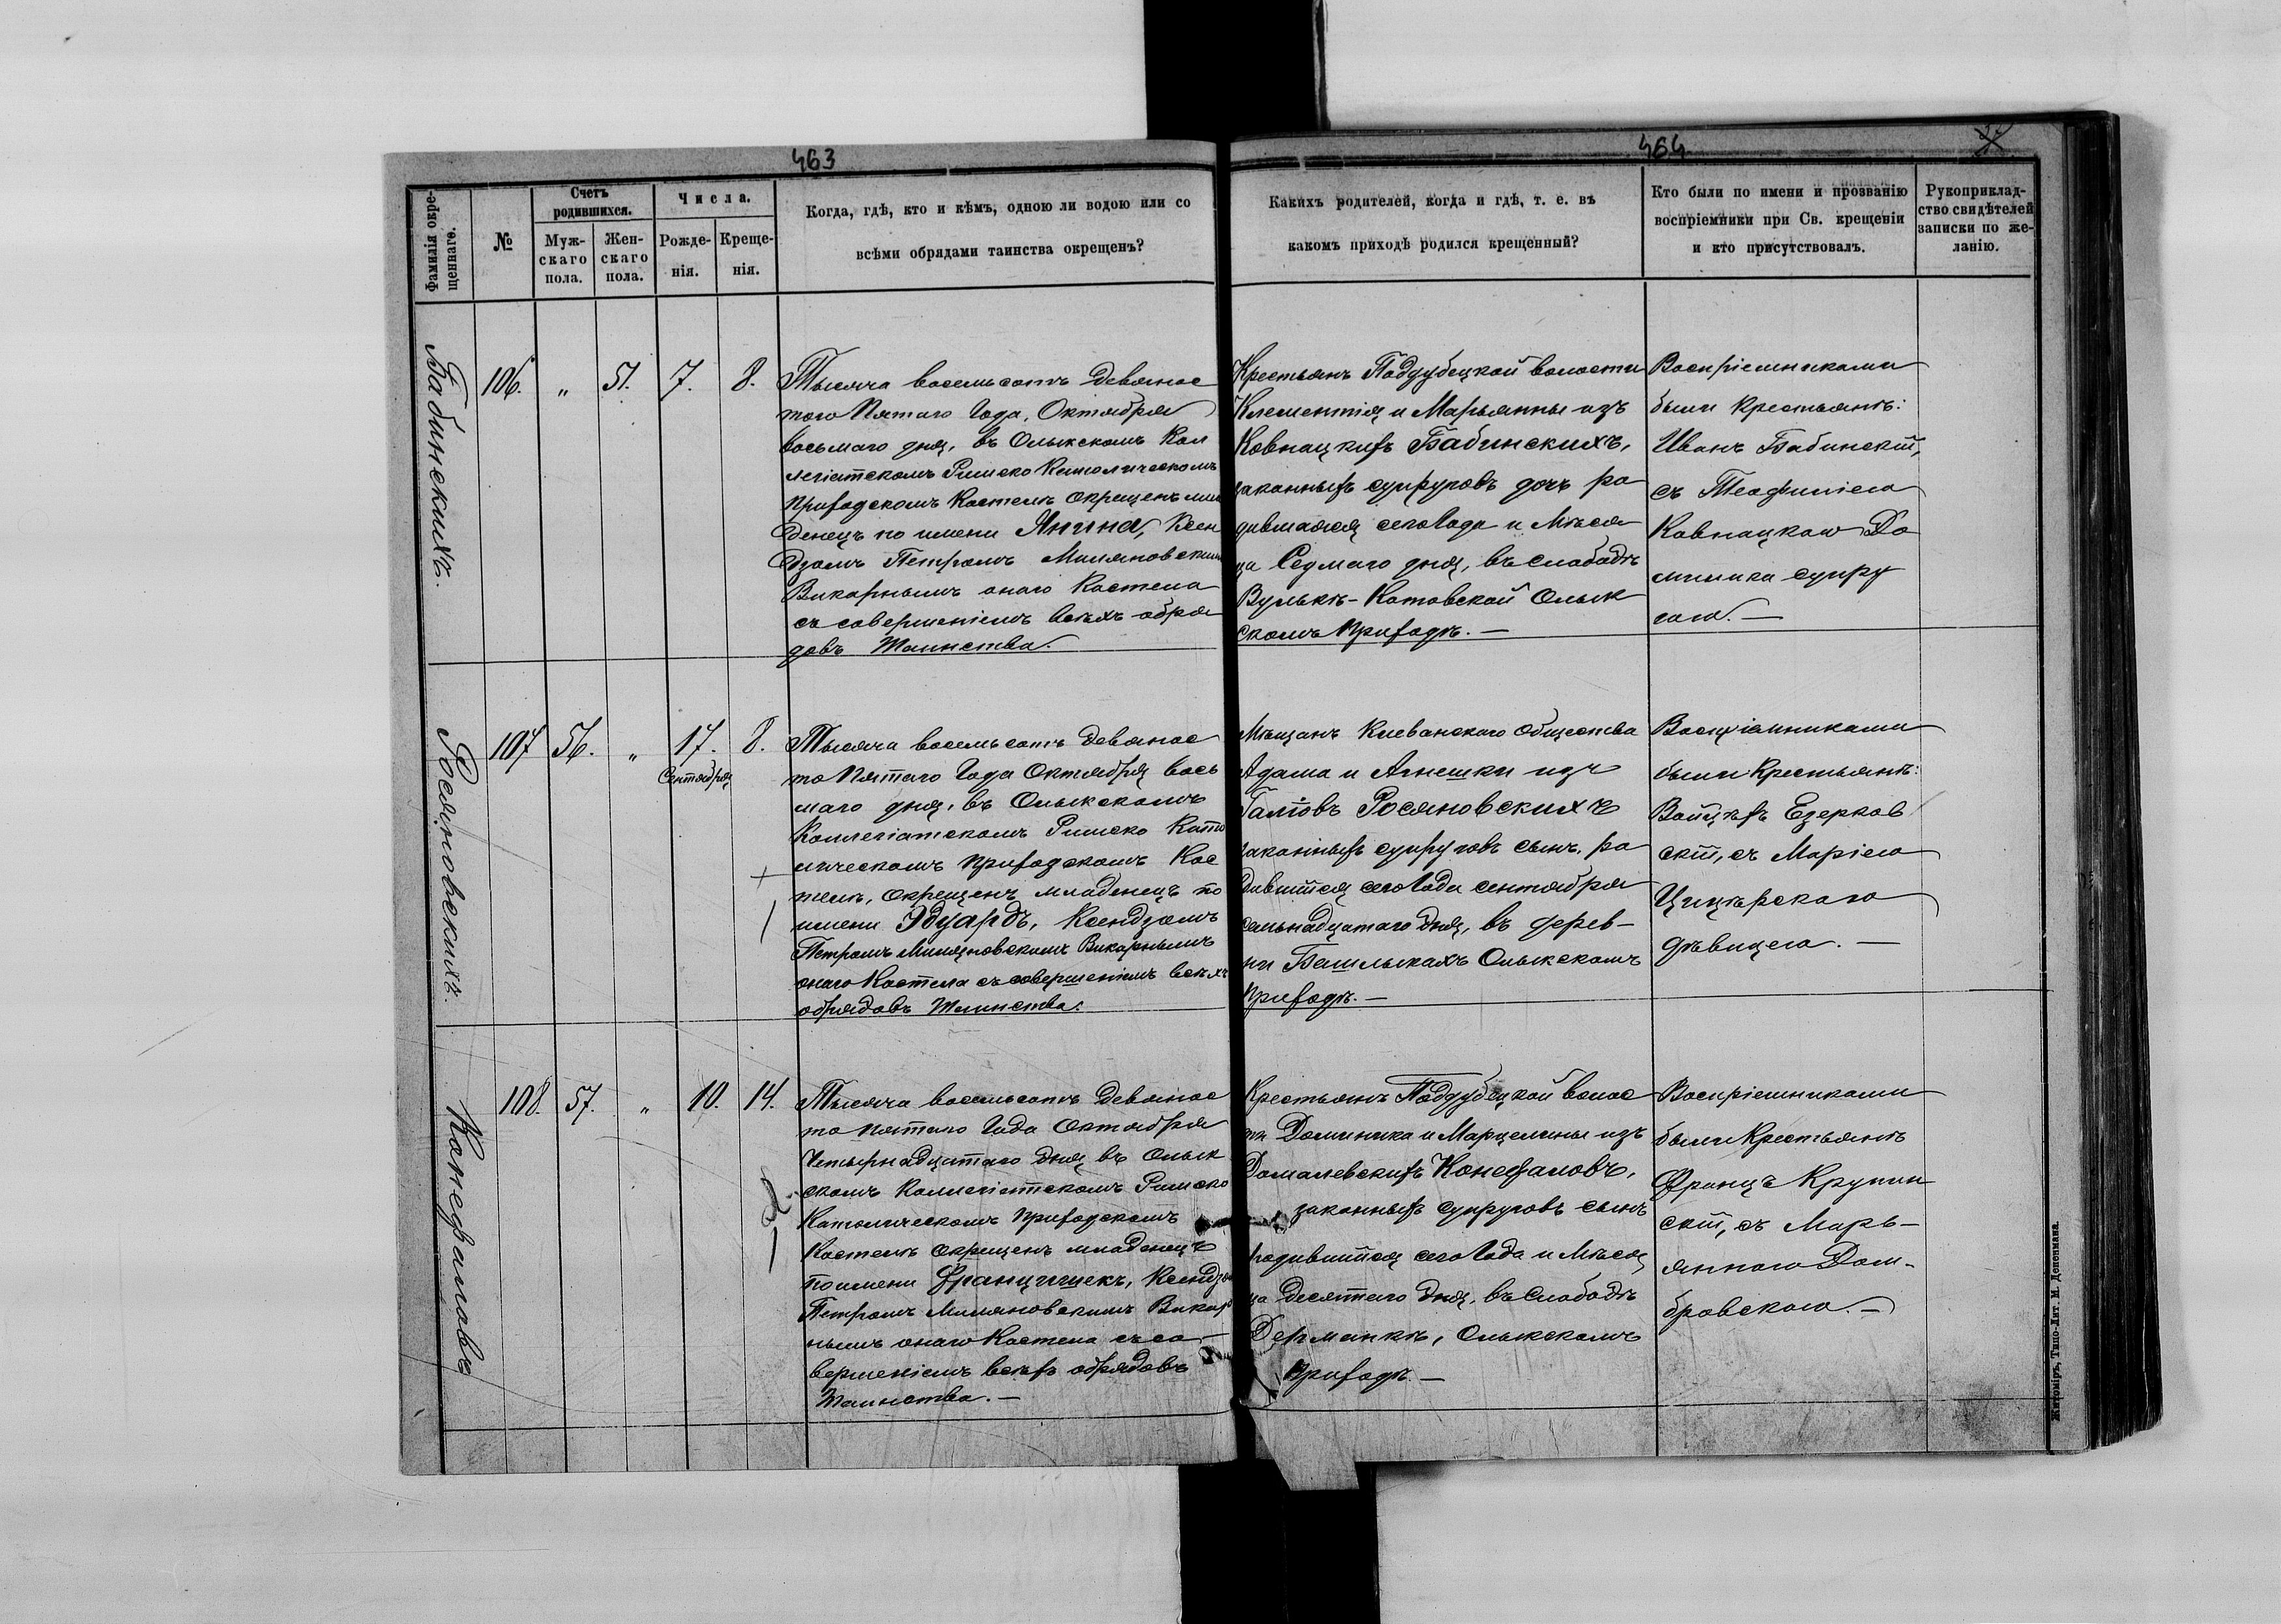 463
Фамилія окре-
щеннаго.
№
Счетъ
родившихся.
Муж-
скаго
пола.
Жен-
скаго
пола.
Числа.
Рожде-
нія.
Креще-
нія.
Когда, гдѣ, кто и кѣмъ, одною ли водою или со
всѣми обрядами таинства окрещенъ?
464
Какихъ родителей, когда и гдѣ, т. е. въ
какомъ приходѣ родился крещенный?
Кто были по имени и прозванію
воспріемники при Св. крещеніи
и кто присутствовалъ.
Рукоприклад-
ство свидѣтелей
записки по же-
ланію.
Бабинскихъ.
106. " 51. 7. 8.
Тысяча восемьсотъ девянос
того Пятаго Года, Октября
восьмаго дня, въ Олыкскомъ Кол
легіатскомъ Римско Католическомъ
Приходскомъ Костелѣ окрещенъ мла
денецъ по имени Янина, Ксен
дзомъ Петромъ Миляновскимъ
Викарнымъ онаго Костела
съ совершеніемъ всѣхъ обря
довъ Таинства.
Крестьянъ Поддубецкой волости
Клементія и Марьянны изъ
Ковнацкихъ Бабинскихъ,
законныхъ супруговъ дочь ро
дившаяся сего Года и Мѣся
ца Седмаго дня, въ слободѣ
Вулькѣ-Котовской Олык
скомъ Приходѣ. —
Воспріемниками
были крестьянѣ:
Иванъ Бабинскій,
съ Теофиліею
Ковнацкою До
миника супру
гою. —
Росяновскихъ.
107 56. " 17. 8.
Сентября
Тысяча восемьсотъ девянос
то Пятаго Года Октября вось
маго дня, въ Олыкскомъ
Коллегіатскомъ Римско Като
лическомъ Приходскомъ Кос
телѣ, окрещенъ младенецъ по
имени Эдуардъ, Ксендзомъ
Петромъ Миляновскимъ Викарнымъ
онаго Костела съ совершеніемъ всѣхъ
обрядовъ Таинства.
Мѣщанъ Клеванскаго Общества
Адама и Агнешки изъ
Росяновскихъ
законныхъ супруговъ сынъ, ро
дившійся сего Года сентября
семьнадцатаго дня, въ дерев-
ни Башлыкахъ Олыкскомъ
Приходѣ. —
Воспріемниками
были Крестьянѣ:
Войцѣхъ Езерков
скій, съ Маріею
дѣвицею. —
Конефаловъ
108. 57. " 10. 14.
Тысяча восемьсотъ девянос
то пятаго Года Октября
Четырнадцатаго дня въ Олык
скомъ Коллегіатскомъ Римско
Католическомъ Приходскомъ
Костелѣ окрещенъ младенецъ
по имени Францишекъ, Ксендзомъ
Петромъ Миляновскимъ Викар
нымъ онаго Костела съ со-
вершеніемъ всѣхъ обрядовъ
Таинства. —
Крестьянъ Поддубецкой волос
ти Доминика и Марцелины изъ
Домалевскихъ Конефаловъ,
законныхъ супруговъ сынъ
родившійся сего Года и Мѣся
ца десятаго дня, въ Слободѣ
Дерманкѣ, Олыкскомъ
Приходѣ. —
Воспріемниками
были Крестьянѣ
Францъ Крупин
скій, съ Марь-
янною Дом-
бровскою. —
Житоміръ, Типо-Лит. М. Дененмана.